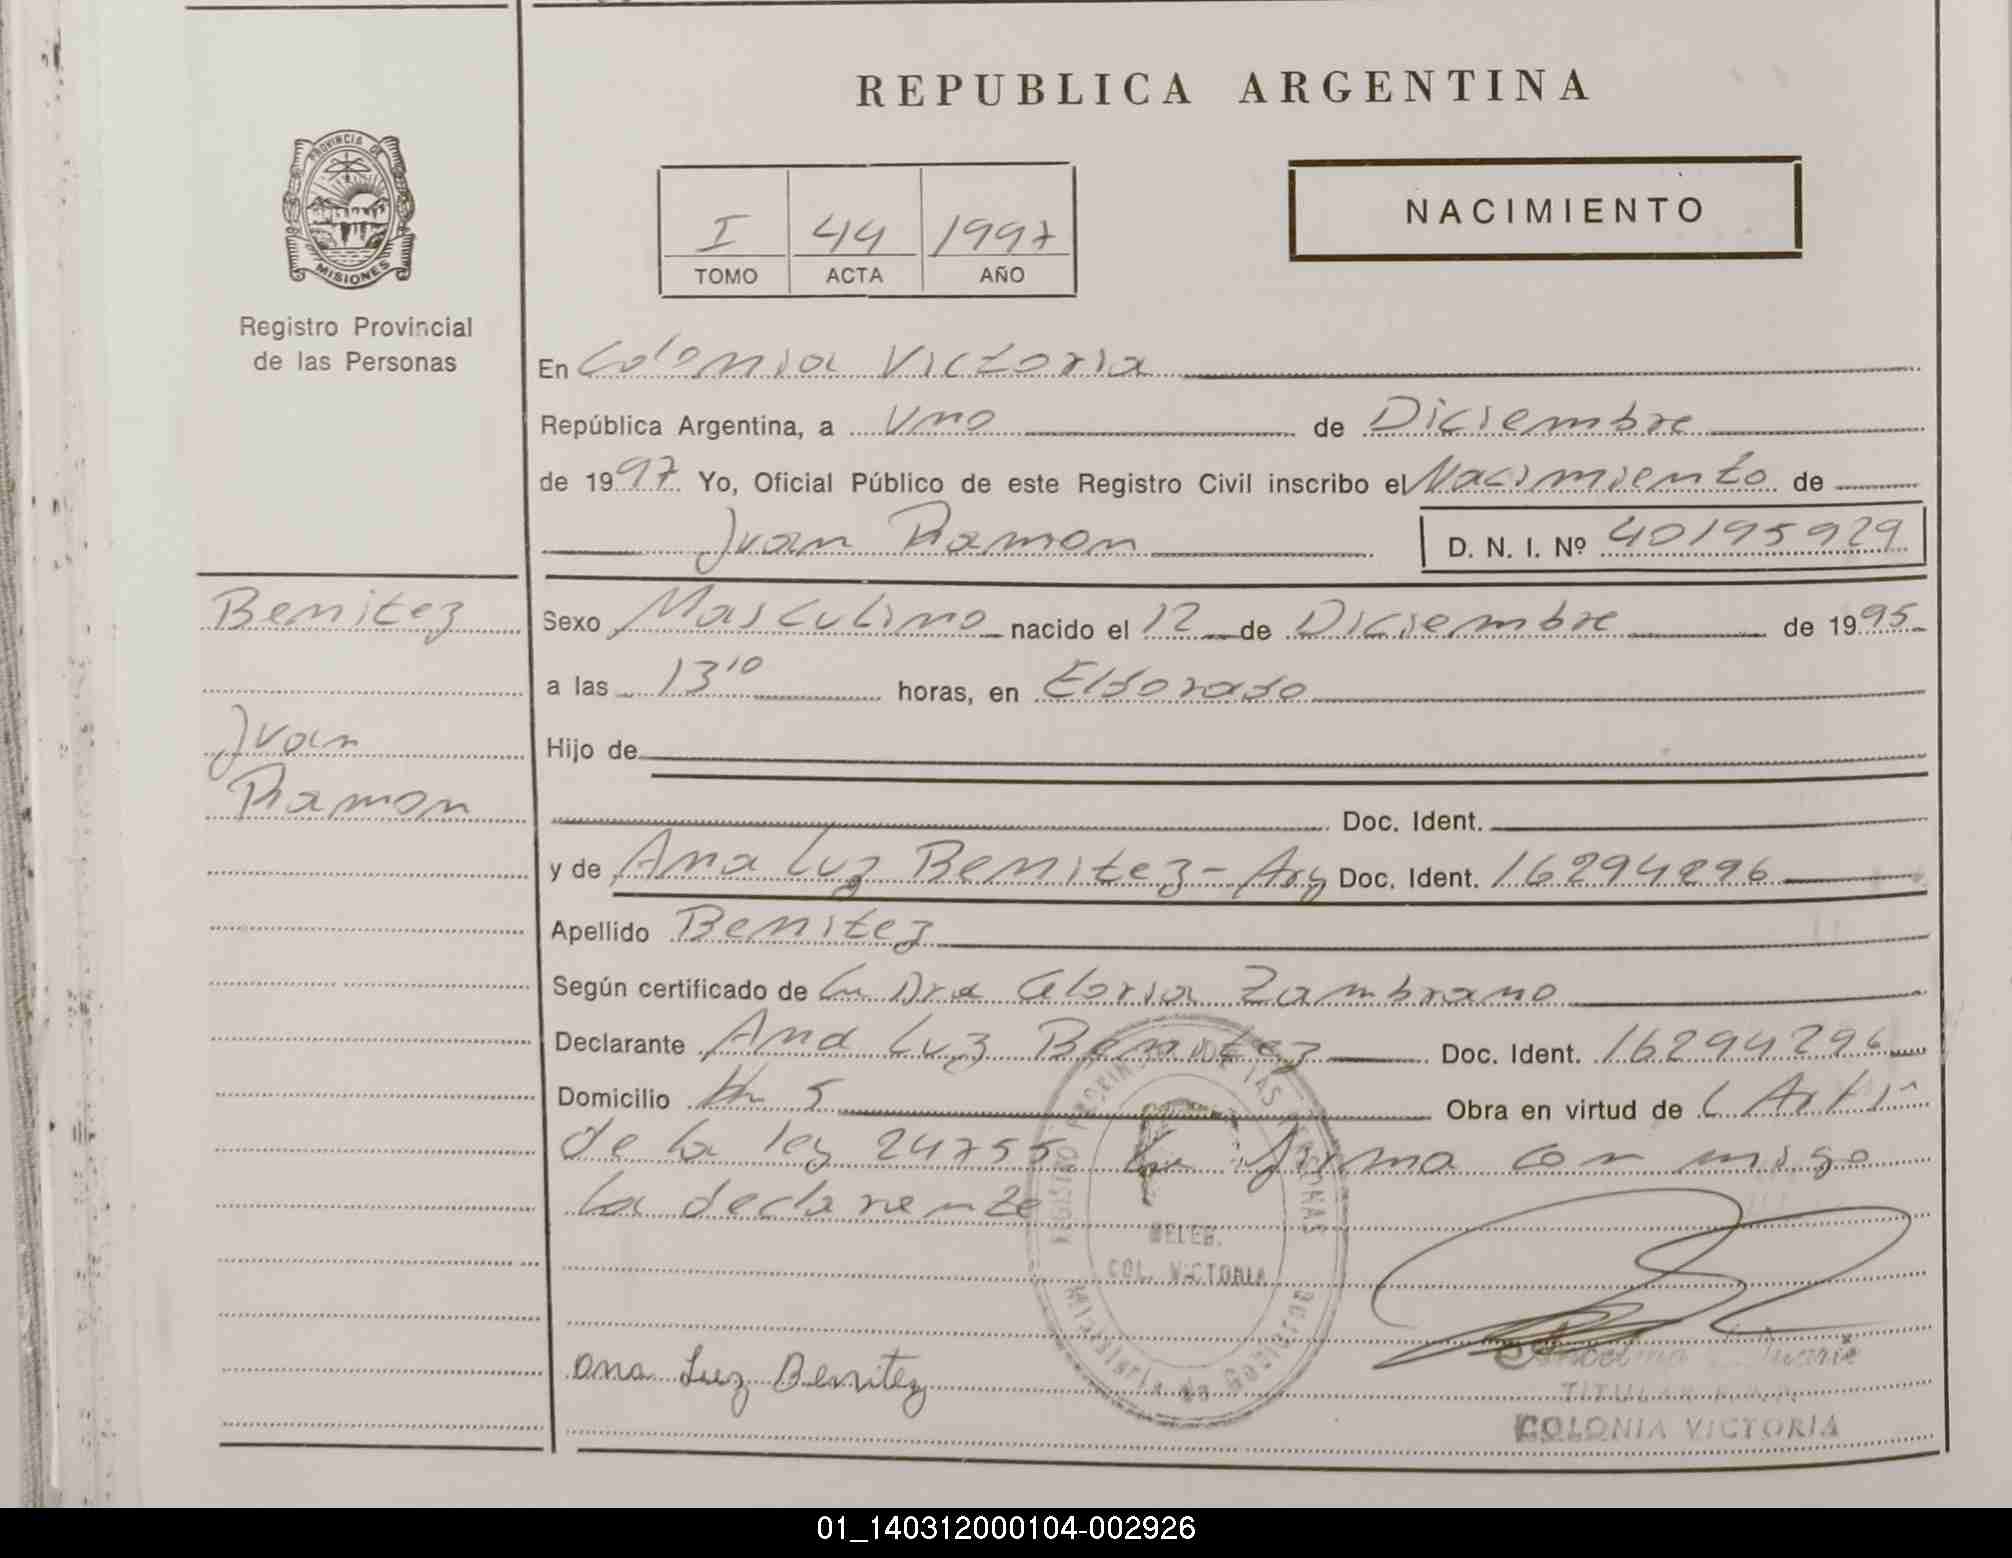 REPUBLICA ARGENTINA
PROVINCIA DE
MISIONES
Registro Provincial
de las Personas
I 44 1997
TOMO ACTA AÑO
NACIMIENTO
En Colonia Victoria
República Argentina, a Uno de Diciembre
de 1997 Yo, Oficial Público de este Registro Civil inscribo el Nacimiento de
Juan Ramon D. N. I. Nº 40195929
Benitez
Juan
Ramon
Sexo Masculino nacido el 12 de Diciembre de 1995
a las 13 10 horas, en Eldorado
Hijo de
Doc. Ident.
y de Ana Luz Benitez - Arg Doc. Ident. 16294296
Apellido Benitez
Según certificado de La Dra Gloria Zambrano
Declarante Ana Luz Benitez Doc. Ident. 16294296
Domicilio Km 5 Obra en virtud de
de la ley 24755 firma con migo
la declarente
DELEG.
COL. VICTORIA
Ministerio de Gobierno
Ana Luz Benitez
TITULAR
COLONIA VICTORIA
01_140312000104-002926